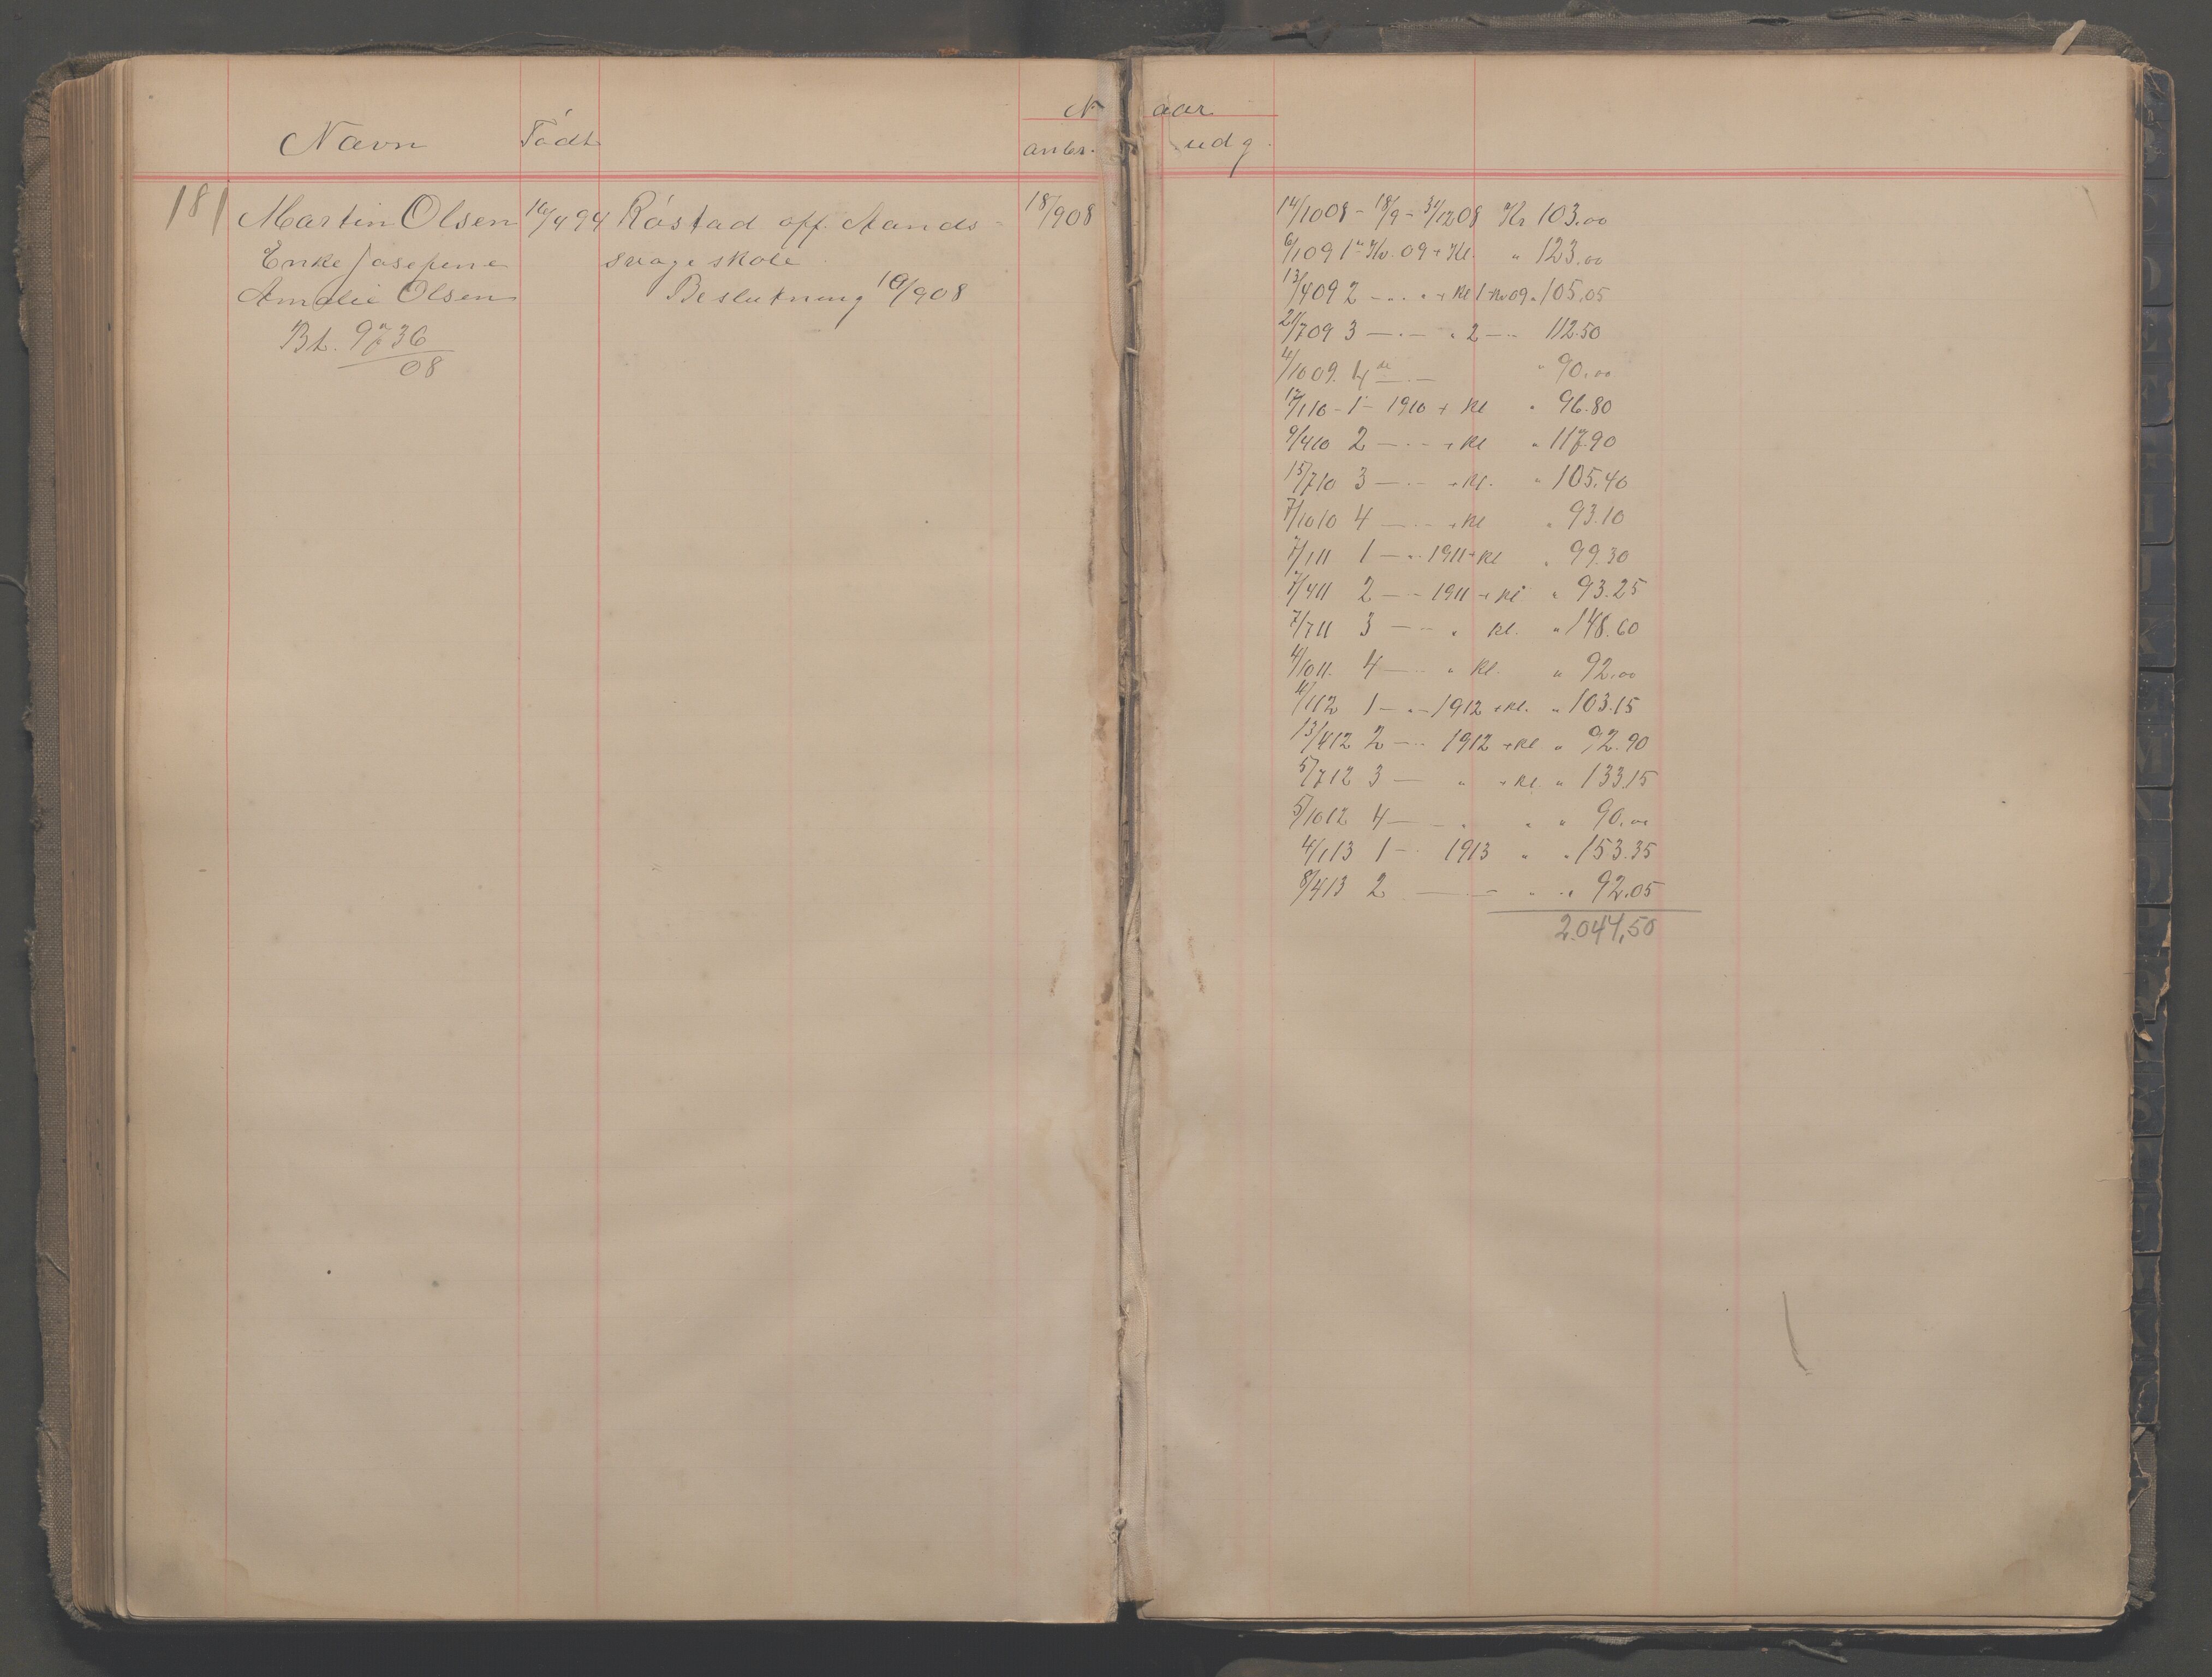 Navn Født N aar
anbr. udg.
181 Martin Olsen 16/4 94 Röstad off. Aands- 18/9 08
Enke Josefine svage skole
Amalie Olsen Beslutning 10/9 08
Bt. 9736
08
14/10 08 - 18/9 - 31/12 08 Kr 103.00
6/1 09 1ste Kv. 09 + Kl. " 123.00
13/4 09 2 — " — " + Kl 1 Kv 09 " 105.05
21/7 09 3 — " — " 2 — " 112.50
4/10 09. 4de — " — " 90.00
17/1 10 - 1 - 1910 + Kl " 96.80
9/4 10 2 — " — + Kl " 117.90
15/7 10 3 — " — + Kl. " 105.40
7/10 10 4 — " — + Kl " 93.10
7/1 11 1 — " 1911 + Kl " 99.30
7/4 11 2 — " 1911 + Kl " 93.25
7/7 11 3 — " " Kl. " 148.60
4/10 11. 4 — " " Kl. " 92.00
4/1 12 1 — " — 1912 + Kl. " 103.15
13/4 12 2 — " 1912 + Kl " 92.90
5/7 12 3 — " + Kl. " 133.15
5/10 12 4 — " " " 90.00
4/1 13 1 — " 1913 " " 153.35
8/4 13 2 — " — " " 92.05
2.047,50